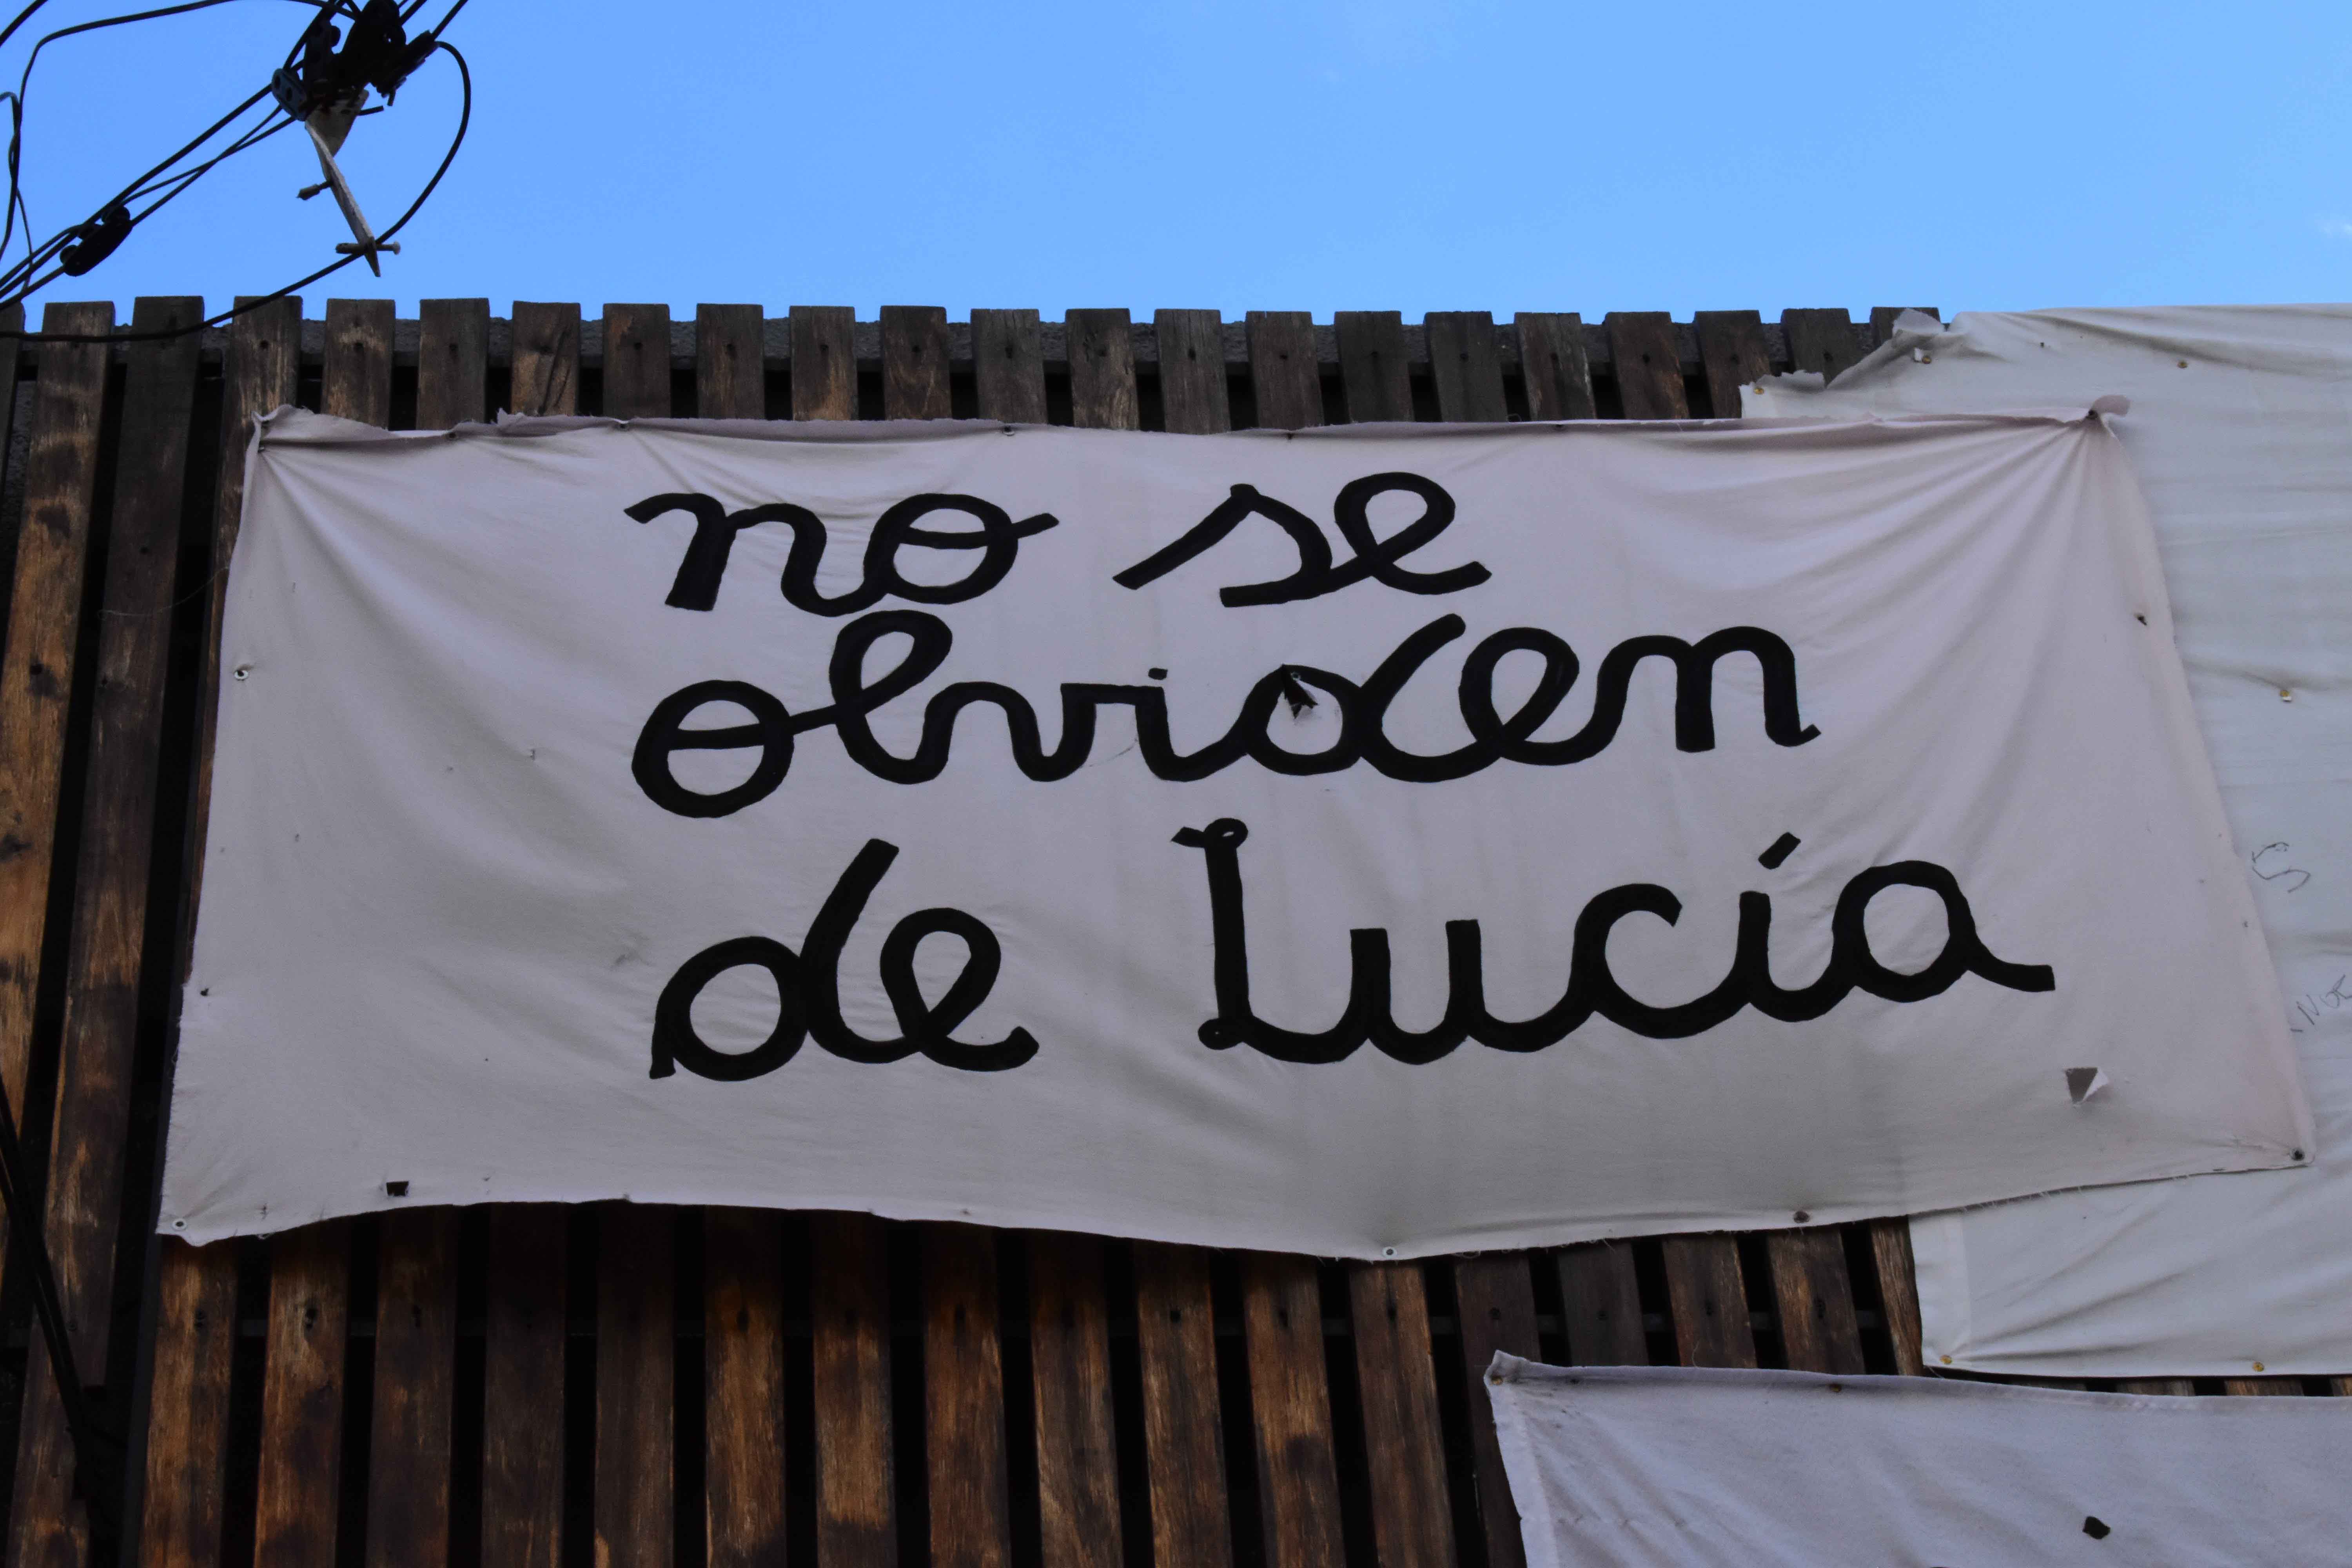 no se
olviden
de Lucía